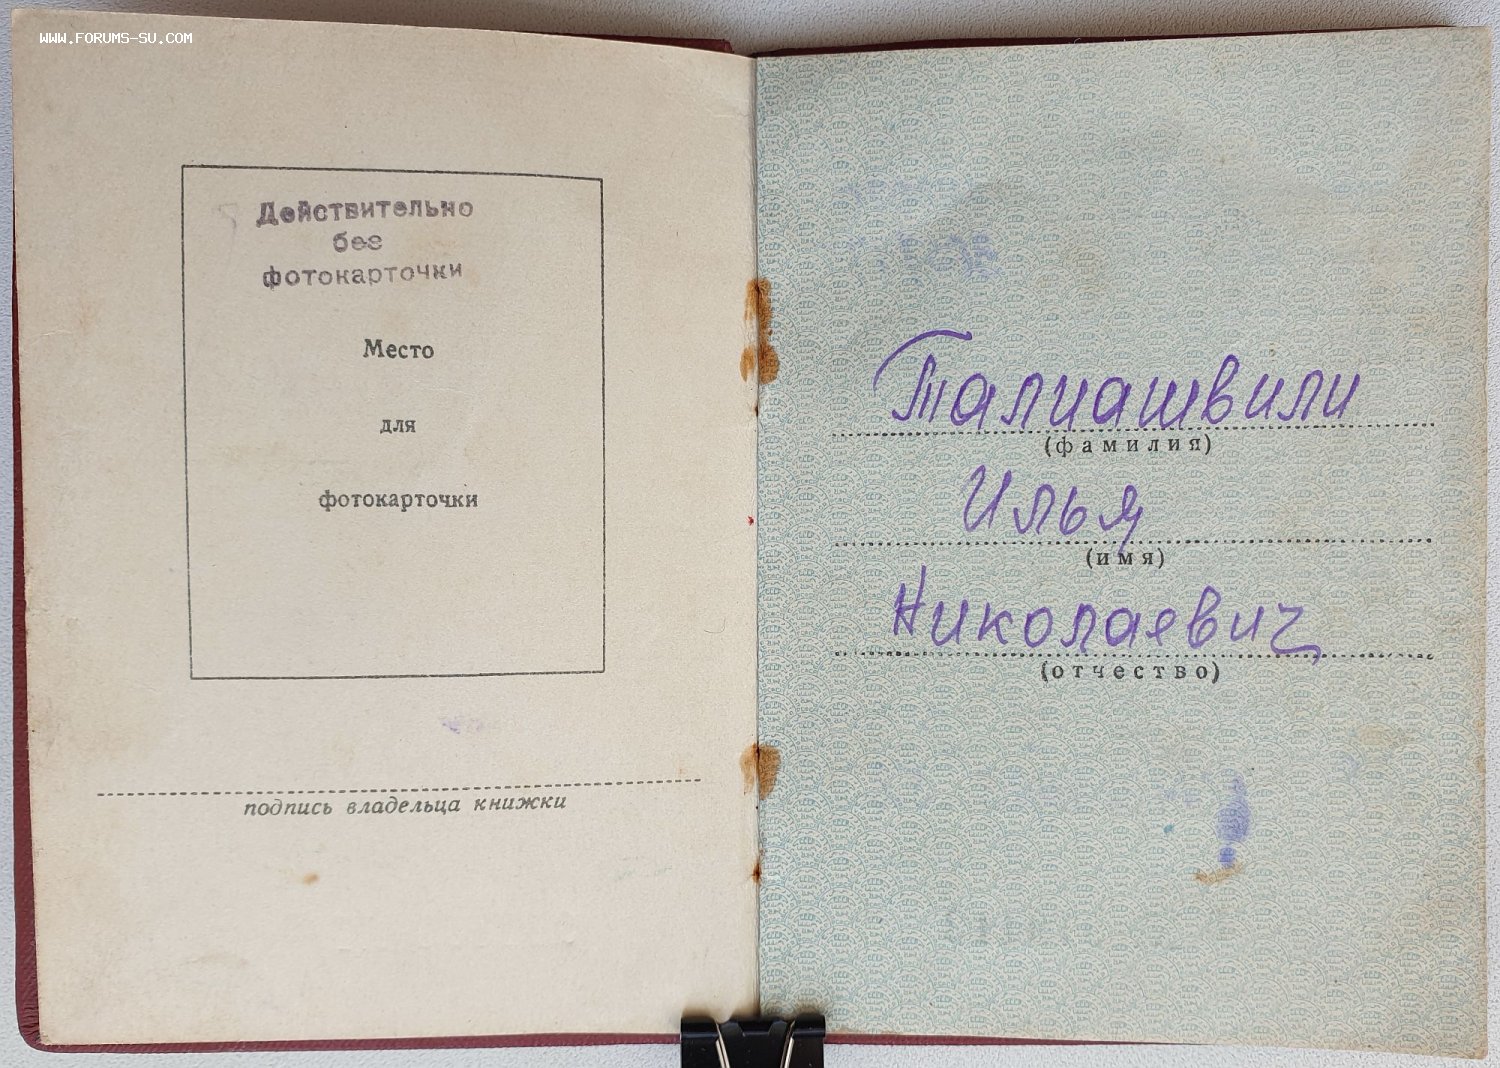 WWW.FORUMS-SU.COM
Действительно
без
фотокарточки
Место
для
фотокарточки
подпись владельца книжки
Талиашвили
(фамилия)
Илья
(имя)
Николаевич
(отчество)